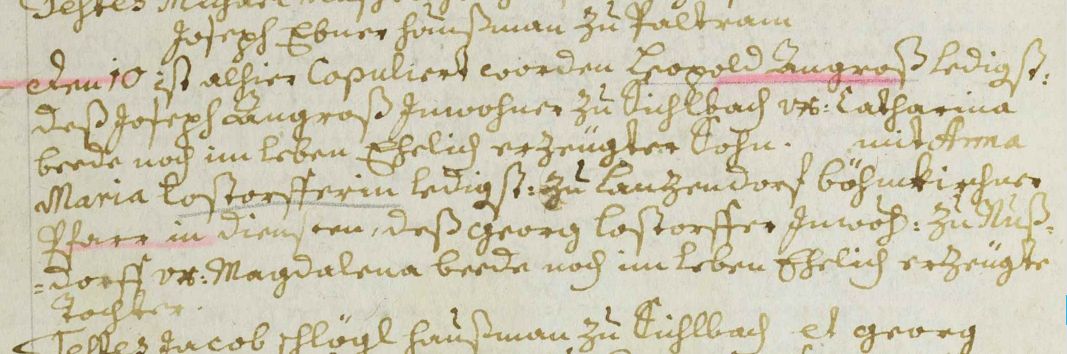 Testes Michael
Joseph Ebner haußman zu Paltram
den 10 ist alhier Copuliert worden Leopold Angroß ledigst:
deß Joseph Angroß Inwohner zu Sichlbach ux: Catharina
beede noch im leben Ehelich erzeügter Sohn. mit Anna
Maria Lostorfferin ledigst: zu Lanzendorf böhmkirchner
Pfarr in diensten, deß georg Lostorffer Inwoh: zu Nuß=
=dorff ux: Magdalena beede noch im leben Ehelich erzeügte
Tochter.
Testes Jacob schlögl haußman zu Sichlbach et georg